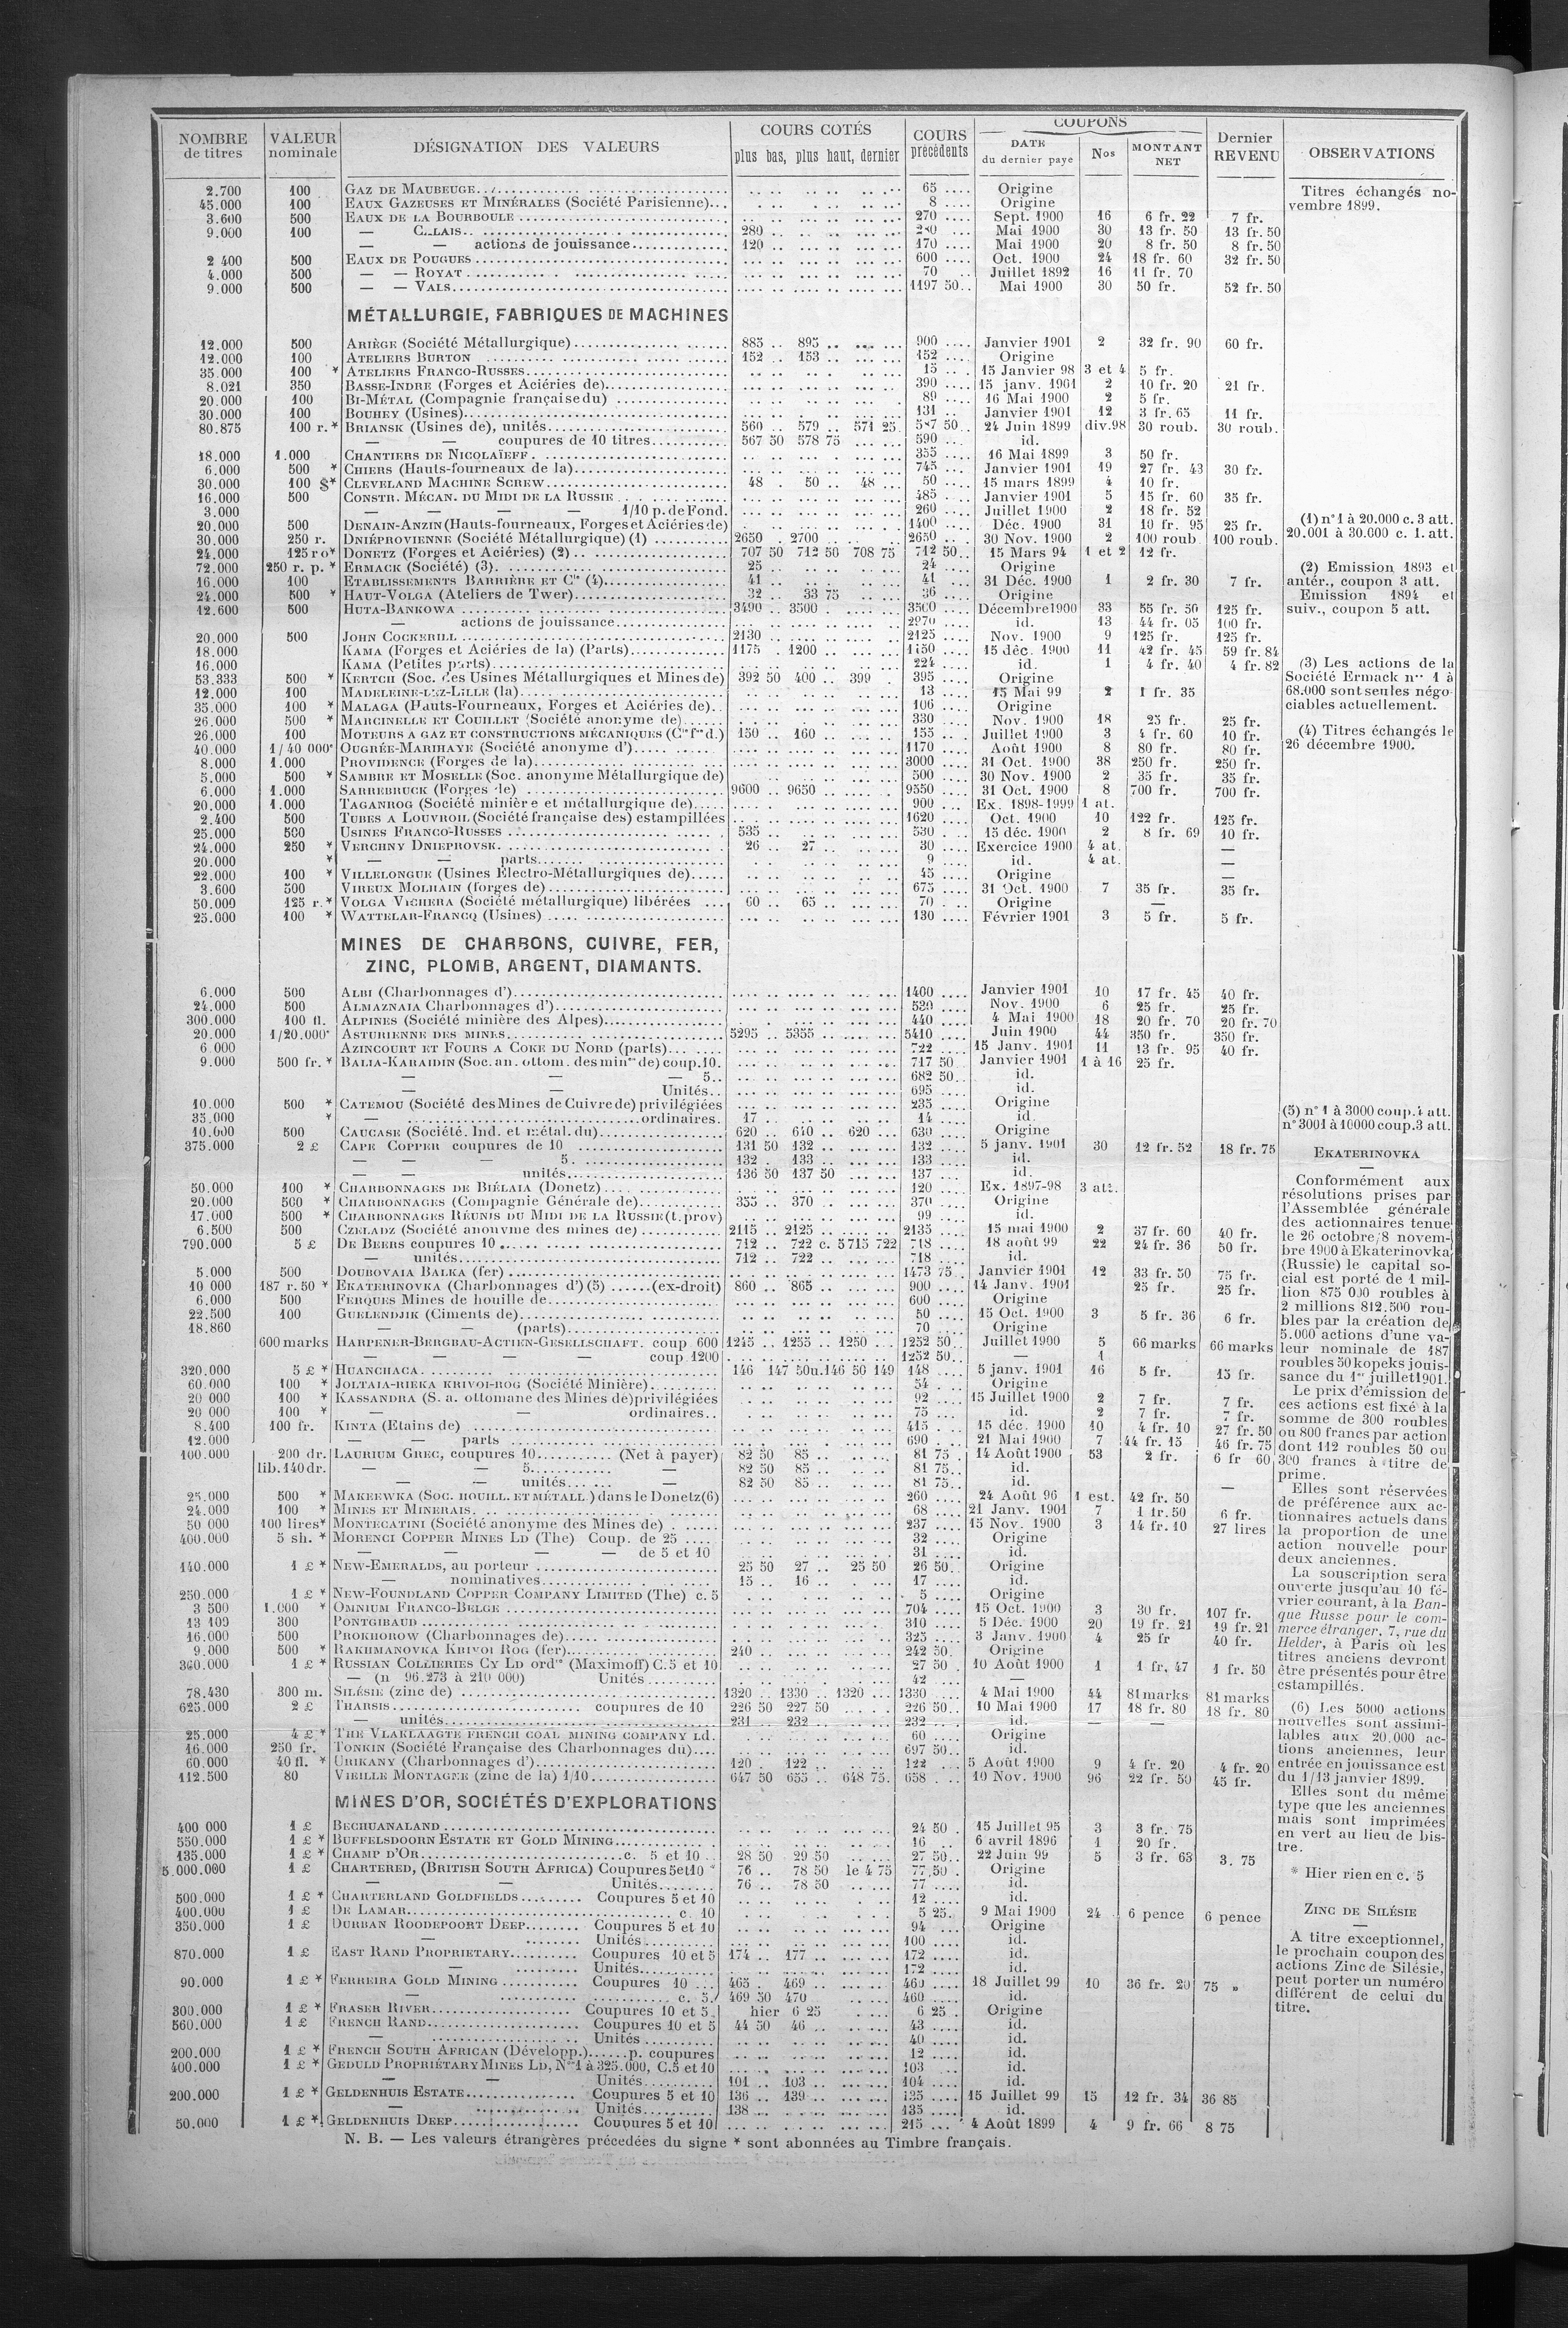 NOMBRE de titres | VALEUR nominale | DÉSIGNATION DES VALEURS | COURS COTÉS plus bas, plus haut, dernier | COURS précédents | COUPONS DATE du dernier payé | Nos | MONTANT NET | Dernier REVENU | OBSERVATIONS
2.700 100 GAZ DE MAUBEUGE 65 Origine
45.000 100 EAUX GAZEUSES ET MINÉRALES (Société Parisienne) 8 Origine
3.600 500 EAUX DE LA BOURBOULE 270 Sept. 1900 16 6 fr. 22 7 fr.
9.000 100 — 280 Mai 1900 30 13 fr. 50 13 fr. 50
— — actions de jouissance 120 170 Mai 1900 20 8 fr. 50 8 fr. 50
2 400 500 EAUX DE POUGUES 600 Oct. 1900 24 18 fr. 60 32 fr. 50
4.000 500 — — ROYAT 70 Juillet 1892 16 11 fr. 70
9.000 500 — — VALS 1197 50 Mai 1900 30 50 fr. 52 fr. 50
MÉTALLURGIE, FABRIQUES DE MACHINES
12.000 500 ARIÈGE (Société Métallurgique) 885 895 900 Janvier 1901 2 32 fr. 90 60 fr.
12.000 100 ATELIERS BURTON 152 153 152 Origine
35.000 100 * ATELIERS FRANCO-RUSSES 15 15 Janvier 98 3 et 4 5 fr.
8.021 350 BASSE-INDRE (Forges et Aciéries de) 390 15 janv. 1901 2 10 fr. 20 21 fr.
20.000 100 BI-MÉTAL (Compagnie française du) 89 16 Mai 1900 2 5 fr.
30.000 100 BOUHEY (Usines) 131 Janvier 1901 12 3 fr. 65 11 fr.
80.875 100 r.* BRIANSK (Usines de), unités 560 579 571 25 587 50 24 Juin 1899 div.98 30 roub. 30 roub.
— — coupures de 10 titres 567 50 578 75 590 id.
18.000 1.000 CHANTIERS DE NICOLAÏEFF 355 16 Mai 1899 3 50 fr.
6.000 500 * CHIERS (Hauts-fourneaux de la) 745 Janvier 1901 19 27 fr. 43 30 fr.
30.000 100 $* CLEVELAND MACHINE SCREW 48 50 48 50 15 mars 1899 4 10 fr.
16.000 500 CONSTR. MÉCAN. DU MIDI DE LA RUSSIE 485 Janvier 1901 5 15 fr. 60 35 fr.
3.000 — — — — 1/10 p. de Fond. 260 Juillet 1900 2 18 fr. 52
20.000 500 DENAIN-ANZIN (Hauts-fourneaux, Forges et Aciéries de) 1400 Déc. 1900 31 10 fr. 95 25 fr.
30.000 250 r. DNIÉPROVIENNE (Société Métallurgique) (1) 2650 2700 2650 30 Nov. 1900 2 100 roub 100 roub.
24.000 125 ro* DONETZ (Forges et Aciéries) (2) 707 50 712 50 708 75 712 50 15 Mars 94 1 et 2 12 fr.
72.000 250 r. p. * ERMACK (Société) (3) 25 24 Origine
16.000 100 ETABLISSEMENTS BARRIÈRE ET Cie (4) 41 41 31 Déc. 1900 1 2 fr. 30 7 fr.
24.000 500 * HAUT-VOLGA (Ateliers de Twer) 32 33 75 36 Origine
12.600 500 HUTA-BANKOWA 3490 3500 3500 Décembre 1900 33 55 fr. 50 125 fr.
— actions de jouissance 2970 id. 13 44 fr. 05 100 fr.
20.000 500 JOHN COCKERILL 2130 2125 Nov. 1900 9 125 fr. 125 fr.
18.000 KAMA (Forges et Aciéries de la) (Parts) 1175 1200 1150 15 déc. 1900 11 42 fr. 45 59 fr. 84
16.000 KAMA (Petites parts) 224 id. 1 4 fr. 40 4 fr. 82
53.333 500 * KERTCH (Soc. des Usines Métallurgiques et Mines de) 392 50 400 399 395 Origine
12.000 100 MADELEINE-LEZ-LILLE (la) 13 15 Mai 99 2 1 fr. 35
35.000 100 * MALAGA (Hauts-Fourneaux, Forges et Aciéries de) 106 Origine
26.000 500 * MARCINELLE ET COUILLET (Société anonyme de) 330 Nov. 1900 18 25 fr. 25 fr.
26.000 100 MOTEURS A GAZ ET CONSTRUCTIONS MÉCANIQUES 150 160 155 Juillet 1900 3 4 fr. 60 10 fr.
40.000 1/40 000e OUGRÉE-MARIHAYE (Société anonyme d') 1170 Août 1900 8 80 fr. 80 fr.
8.000 1.000 PROVIDENCE (Forges de la) 3000 31 Oct. 1900 38 250 fr. 250 fr.
5.000 500 * SAMBRE ET MOSELLE (Soc. anonyme Métallurgique de) 500 30 Nov. 1900 2 35 fr. 35 fr.
6.000 1.000 SARREBRUCK (Forges de) 9600 9650 9550 31 Oct. 1900 8 700 fr. 700 fr.
20.000 1.000 TAGANROG (Société minière et métallurgique de) 900 Ex. 1898-1999 1 at.
2.400 500 TUBES A LOUVROIL (Société française des) estampillées 1620 Oct. 1900 10 122 fr. 125 fr.
25.000 500 USINES FRANCO-RUSSES 535 530 15 déc. 1900 2 8 fr. 69 10 fr.
24.000 250 * VERCHNY DNIEPROVSK 26 27 30 Exercice 1900 4 at. —
20.000 * — — parts 9 id. 4 at. —
22.000 100 * VILLELONGUE (Usines Électro-Métallurgiques de) 45 Origine —
3.600 500 VIREUX MOLHAIN (forges de) 675 31 Oct. 1900 7 35 fr. 35 fr.
50.000 125 r.* VOLGA VICHERA (Société métallurgique) libérées 60 65 70 Origine —
25.000 100 * WATTELAR-FRANCQ (Usines) 130 Février 1901 3 5 fr. 5 fr.
MINES DE CHARBONS, CUIVRE, FER,
ZINC, PLOMB, ARGENT, DIAMANTS.
6.000 500 ALBI (Charbonnages d') 1400 Janvier 1901 10 17 fr. 45 40 fr.
24.000 500 ALMAZNAIA Charbonnages d') 530 Nov. 1900 6 25 fr. 25 fr.
300.000 100 fl. ALPINES (Société minière des Alpes) 440 4 Mai 1900 18 20 fr. 70 20 fr. 70
20.000 1/20.000e ASTURIENNE DES MINES 5295 5355 5410 Juin 1900 44 350 fr. 350 fr.
6.000 AZINCOURT ET FOURS A COKE DU NORD (parts) 722 15 Janv. 1901 11 13 fr. 95 40 fr.
9.000 500 fr. * BALIA-KARAIDIN (Soc. an. ottom. des mines de) coup. 10. 717 50 Janvier 1901 1 à 16 25 fr.
— — — 5 682 50 id.
— — Unités 695 id.
10.000 500 * CATEMOU (Société des Mines de Cuivre de) privilégiées 235 Origine
35.000 * — ordinaires. 17 14 id.
10.000 500 CAUCASE (Société. Ind. et métal. du) 620 640 620 630 Origine
375.000 2 £ CAPE COPPER coupures de 10 131 50 132 132 5 janv. 1901 30 12 fr. 52 18 fr. 75
— — — 5. 132 133 133 id.
— — unités 136 50 137 50 137 id.
50.000 100 * CHARBONNAGES DE BIÉLAIA (Donetz) 120 Ex. 1897-98 3 att.
20.000 500 * CHARBONNAGES (Compagnie Générale de) 355 370 370 Origine
17.000 500 * CHARBONNAGES RÉUNIS DU MIDI DE LA RUSSIE (t. prov) 99 id.
6.500 500 CZELADZ (Société anonyme des mines de) 2115 2125 2135 15 mai 1900 2 37 fr. 60 40 fr.
790.000 5 £ DE BEERS coupures 10 712 722 c. 5 715 722 718 18 août 99 22 24 fr. 36 50 fr.
— unités 712 722 718 id.
5.000 500 DOUBOVAIA BALKA (fer) 1473 75 Janvier 1901 12 33 fr. 50 75 fr.
10 000 187 r. 50 * EKATERINOVKA (Charbonnages d') (5) (ex-droit) 860 865 900 14 Janv. 1901 25 fr. 25 fr.
6.000 500 FERQUES Mines de houille de 600 Origine
22.500 100 GUELENDJIK (Ciments de) 50 15 Oct. 1900 3 5 fr. 36 6 fr.
18.860 — — (parts) 70 Origine
600 marks HARPENER-BERGBAU-ACTIEN-GESELLSCHAFT. coup 600 1245 1255 1250 1252 50 Juillet 1900 5 66 marks 66 marks
— — — — coup. 1200 1252 50 — 1
320.000 5 £ * HUANCHACA 146 147 50 u. 146 50 149 148 5 janv. 1901 16 5 fr. 15 fr.
60.000 100 * JOLTAIA-RIEKA KRIVOI-ROG (Société Minière) 54 Origine
20 000 100 * KASSANDRA (S. a. ottomane des Mines de) privilégiées 92 15 Juillet 1900 2 7 fr. 7 fr.
20 000 100 * — — ordinaires 75 id. 2 7 fr. 7 fr.
8.400 100 fr. KINTA (Etains de) 415 15 déc. 1900 10 4 fr. 10 27 fr. 50
12.000 — — parts 690 21 Mai 1900 7 44 fr. 15 46 fr. 75
100.000 200 dr. LAURIUM GREC, coupures 10 (Net à payer) 82 50 85 81 75 14 Août 1900 53 2 fr. 6 fr 60
lib. 140 dr. — — 5 — 82 50 85 81 75 id.
— — unités — 82 50 85 81 75 id.
25.000 500 * MAKEEWKA (SOC. HOUILL. ET MÉTALL.) dans le Donetz (6) 260 24 Août 96 1 est. 42 fr. 50 —
24.000 100 * MINES ET MINERAIS 68 21 Janv. 1901 7 1 fr. 50 6 fr.
50 000 100 lires* MONTECATINI (Société anonyme des Mines de) 237 15 Nov. 1900 3 14 fr. 10 27 lires
400.000 5 sh. * MORENCI COPPER MINES LD (The) Coup. de 25 32 Origine
— — — — de 5 et 10 31 id.
140.000 1 £ * NEW-EMERALDS, au porteur 25 50 27 25 50 26 50 Origine
— nominatives 15 16 17 id.
250.000 1 £ * NEW-FOUNDLAND COPPER COMPANY LIMITED (The) c. 5 5 Origine
3 500 1.000 * OMNIUM FRANCO-BELGE 704 15 Oct. 1900 3 30 fr. 107 fr.
13 100 300 PONTGIBAUD 310 5 Déc. 1900 20 19 fr. 21 19 fr. 21
16.000 500 PROKHOROW (Charbonnages de) 325 3 Janv. 1900 4 25 fr 40 fr.
9.000 500 * RAKHMANOVKA KRIVOI ROG (fer) 240 242 50 Origine
360.000 1 £ * RUSSIAN COLLIERIES CY LD ordres (Maximoff) C. 5 et 10 27 50 10 Août 1900 1 1 fr. 47 1 fr. 50
— (n 96.273 à 210 000) Unités 42 —
78.430 300 m. SILÉSIE (zinc de) 1320 1330 1320 1330 4 Mai 1900 44 81 marks 81 marks
625.000 2 £ THARSIS coupures de 10 226 50 227 50 226 50 10 Mai 1900 17 18 fr. 80 18 fr. 80
— unités 231 232 232 id. — —
25.000 4 £ * THE VLAKLAAGTE FRENCH COAL MINING COMPANY Ld. 60 Origine
16.000 250 fr. TONKIN (Société Française des Charbonnages du) 697 50 id.
60.000 40 fl. * URIKANY (Charbonnages d') 120 122 122 5 Août 1900 9 4 fr. 20 4 fr. 20
112.500 80 VIEILLE MONTAGNE (zinc de la) 1/10 647 50 655 648 75 658 10 Nov. 1900 96 22 fr. 50 45 fr.
MINES D'OR, SOCIÉTÉS D'EXPLORATIONS
400 000 1 £ BECHUANALAND 24 50 15 Juillet 95 3 3 fr. 75
550.000 1 £ * BUFFELSDOORN ESTATE ET GOLD MINING 16 6 avril 1896 1 20 fr.
135.000 1 £ * CHAMP D'OR c. 5 et 10 28 50 29 50 27 50 22 Juin 99 5 3 fr. 63 3. 75
5.000.000 1 £ CHARTERED, (BRITISH SOUTH AFRICA) Coupures 5 et 10 * 76 78 50 le 4 75 77,50 Origine
— — Unités 76 78 50 77 id.
500.000 1 £ * CHARTERLAND GOLDFIELDS Coupures 5 et 10 12 id.
400.000 1 £ DE LAMAR c. 10 5 25 9 Mai 1900 24 6 pence 6 pence
350.000 1 £ DURBAN ROODEPOORT DEEP Coupures 5 et 10 94 Origine
— Unités 100 id.
870.000 1 £ EAST RAND PROPRIETARY Coupures 10 et 5 174 177 172 id.
— Unités 172 id.
90.000 1 £ * FERREIRA GOLD MINING Coupures 10 465 469 460 18 Juillet 99 10 36 fr. 20 75 »
— c. 5 469 50 470 460 id.
300.000 1 £ * FRASER RIVER Coupures 10 et 5 hier 6 25 6 25 Origine
560.000 1 £ FRENCH RAND Coupures 10 et 5 44 50 46 43 id.
— Unités 40 id.
200.000 1 £ * FRENCH SOUTH AFRICAN (Développ.) p. coupures 12 id.
400.000 1 £ * GEDULD PROPRIÉTARY MINES LD, Nos 1 à 325.000, C. 5 et 10 103 id.
— — Unités 101 103 104 id.
200.000 1 £ * GELDENHUIS ESTATE Coupures 5 et 10 136 139 135 15 Juillet 99 15 12 fr. 34 36 85
— Unités 138 135 id.
50.000 1 £ * GELDENHUIS DEEP Coupures 5 et 10 215 4 Août 1899 4 9 fr. 66 8 75
N. B. — Les valeurs étrangères précédées du signe * sont abonnées au Timbre français.
Titres échangés no-
vembre 1899.
(1) n° 1 à 20.000 c. 3 att.
20.001 à 30.000 c. 1. att.
(2) Emission 1893 et
antér., coupon 3 att.
Emission 1894 et
suiv., coupon 5 att.
(3) Les actions de la
Société Ermack nos 1 à
68.000 sont seules négo-
ciables actuellement.
(4) Titres échangés le
26 décembre 1900.
(5) n° 1 à 3000 coup. 4 att.
n° 3001 à 10000 coup. 3 att.
EKATERINOVKA
—
Conformément aux
résolutions prises par
l'Assemblée générale
des actionnaires tenue
le 26 octobre/8 novem-
bre 1900 à Ekaterinovka
(Russie) le capital so-
cial est porté de 1 mil-
lion 875 000 roubles à
2 millions 812.500 rou-
bles par la création de
5.000 actions d'une va-
leur nominale de 187
roubles 50 kopeks jouis-
sance du 1er juillet 1901.
Le prix d'émission de
ces actions est fixé à la
somme de 300 roubles
ou 800 francs par action
dont 112 roubles 50 ou
300 francs à titre de
prime.
Elles sont réservées
de préférence aux ac-
tionnaires actuels dans
la proportion de une
action nouvelle pour
deux anciennes.
La souscription sera
ouverte jusqu'au 10 fé-
vrier courant, à la Ban-
que Russe pour le com-
merce étranger, 7, rue du
Helder, à Paris où les
titres anciens devront
être présentés pour être
estampillés.
(6) Les 5000 actions
nouvelles sont assimi-
lables aux 20.000 ac-
tions anciennes, leur
entrée en jouissance est
du 1/13 janvier 1899.
Elles sont du même
type que les anciennes
mais sont imprimées
en vert au lieu de bis-
tre.
* Hier rien en c. 5
ZINC DE SILÉSIE
—
A titre exceptionnel,
le prochain coupon des
actions Zinc de Silésie,
peut porter un numéro
différent de celui du
titre.